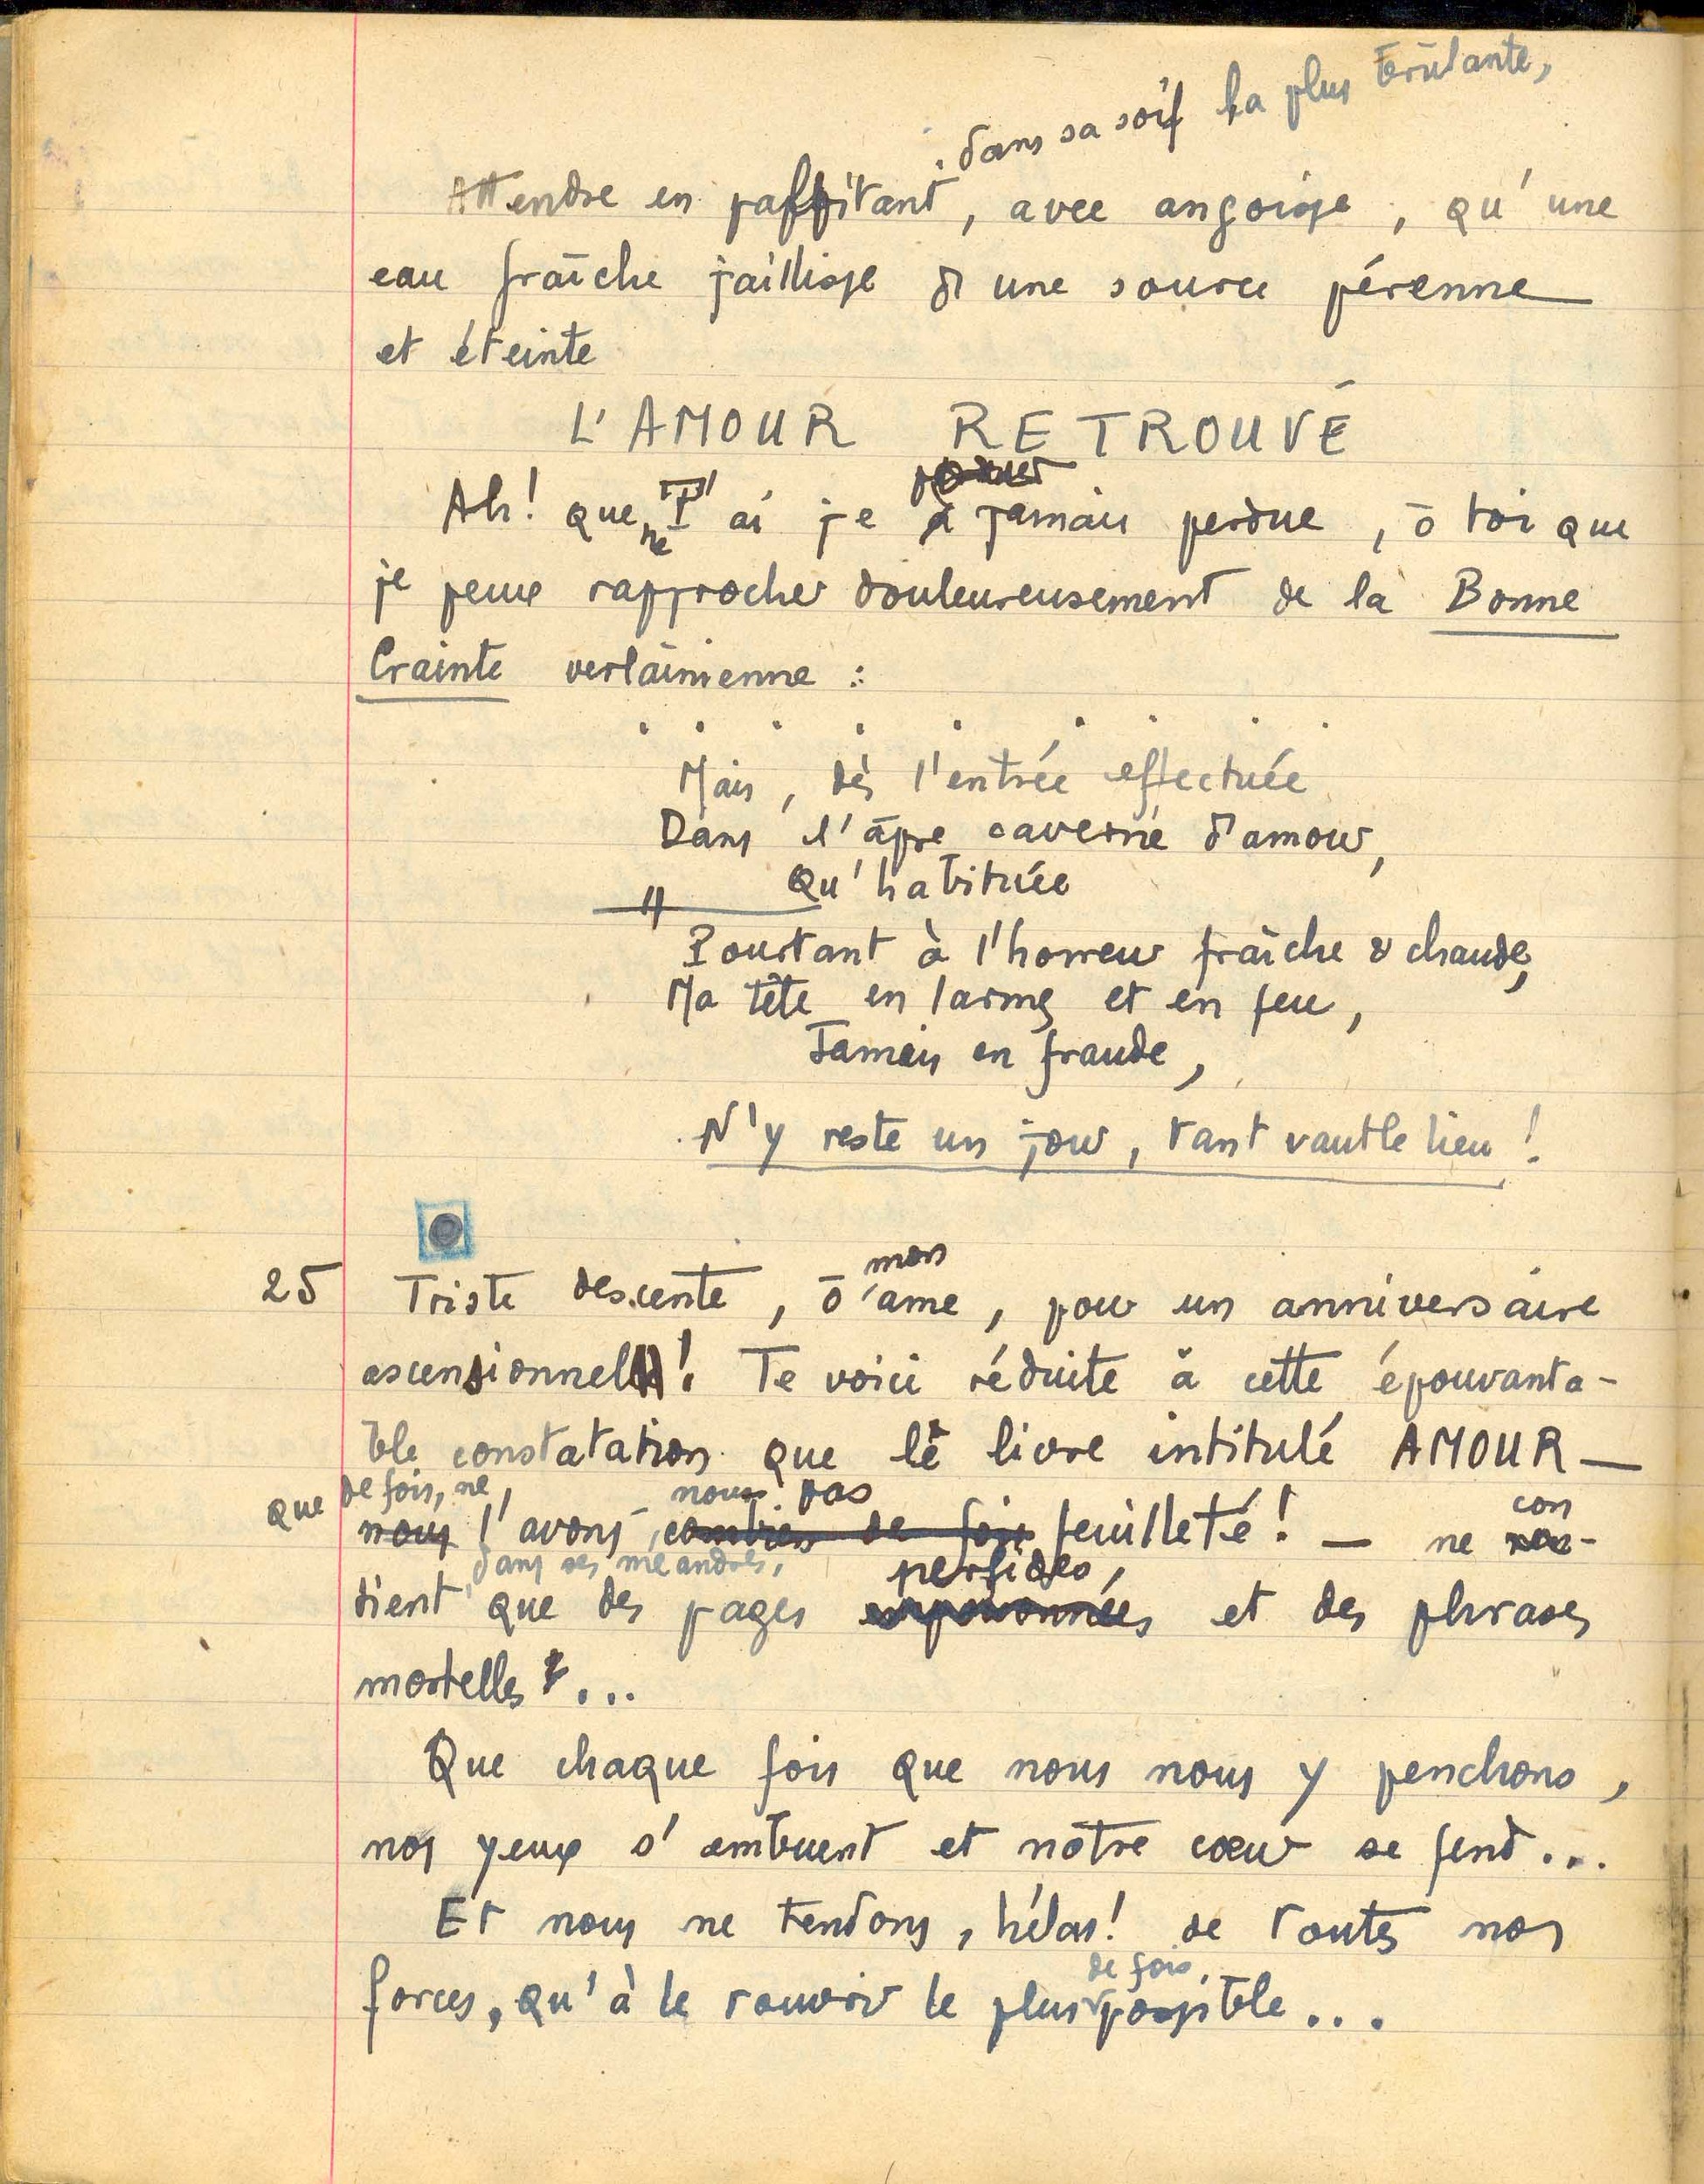 dans sa soif la plus brûlante,
Attendre en palpitant, avec angoisse, qu'une
eau fraîche jaillisse d'une source pérenne
et éteinte
L'AMOUR RETROUVÉ
Ah! que ne t'ai je à jamais perdue, ô toi que
je peux rapprocher douleureusement de la Bonne
Crainte verlainienne :
. . . . . . . . .
Mais, dès l'entrée effectuée
Dans l'âpre caverne d'amour,
Qu'habituée
Pourtant à l'horreur fraîche & chaude,
Ma tête en larmes et en feu,
Jamais en fraude,
N'y reste un jour, tant vaut le lieu !
mon
25 Triste descente, ô âme, pour un anniversaire
ascensionnel! Te voici réduite à cette épouvanta-
ble constatation que le livre intitulé AMOUR —
que de fois, ne nous pas
nous l'avons combien de fois feuilleté! — ne con
dans ses méandres, perfides,
tient que des pages empoisonnées et des phrases
mortelles...
Que chaque fois que nous nous y penchons,
nos yeux s'embuent et notre cœur se fend...
Et nous ne tendons, hélas! de toutes nos
de fois,
forces, qu'à le rouvrir le plus possible...